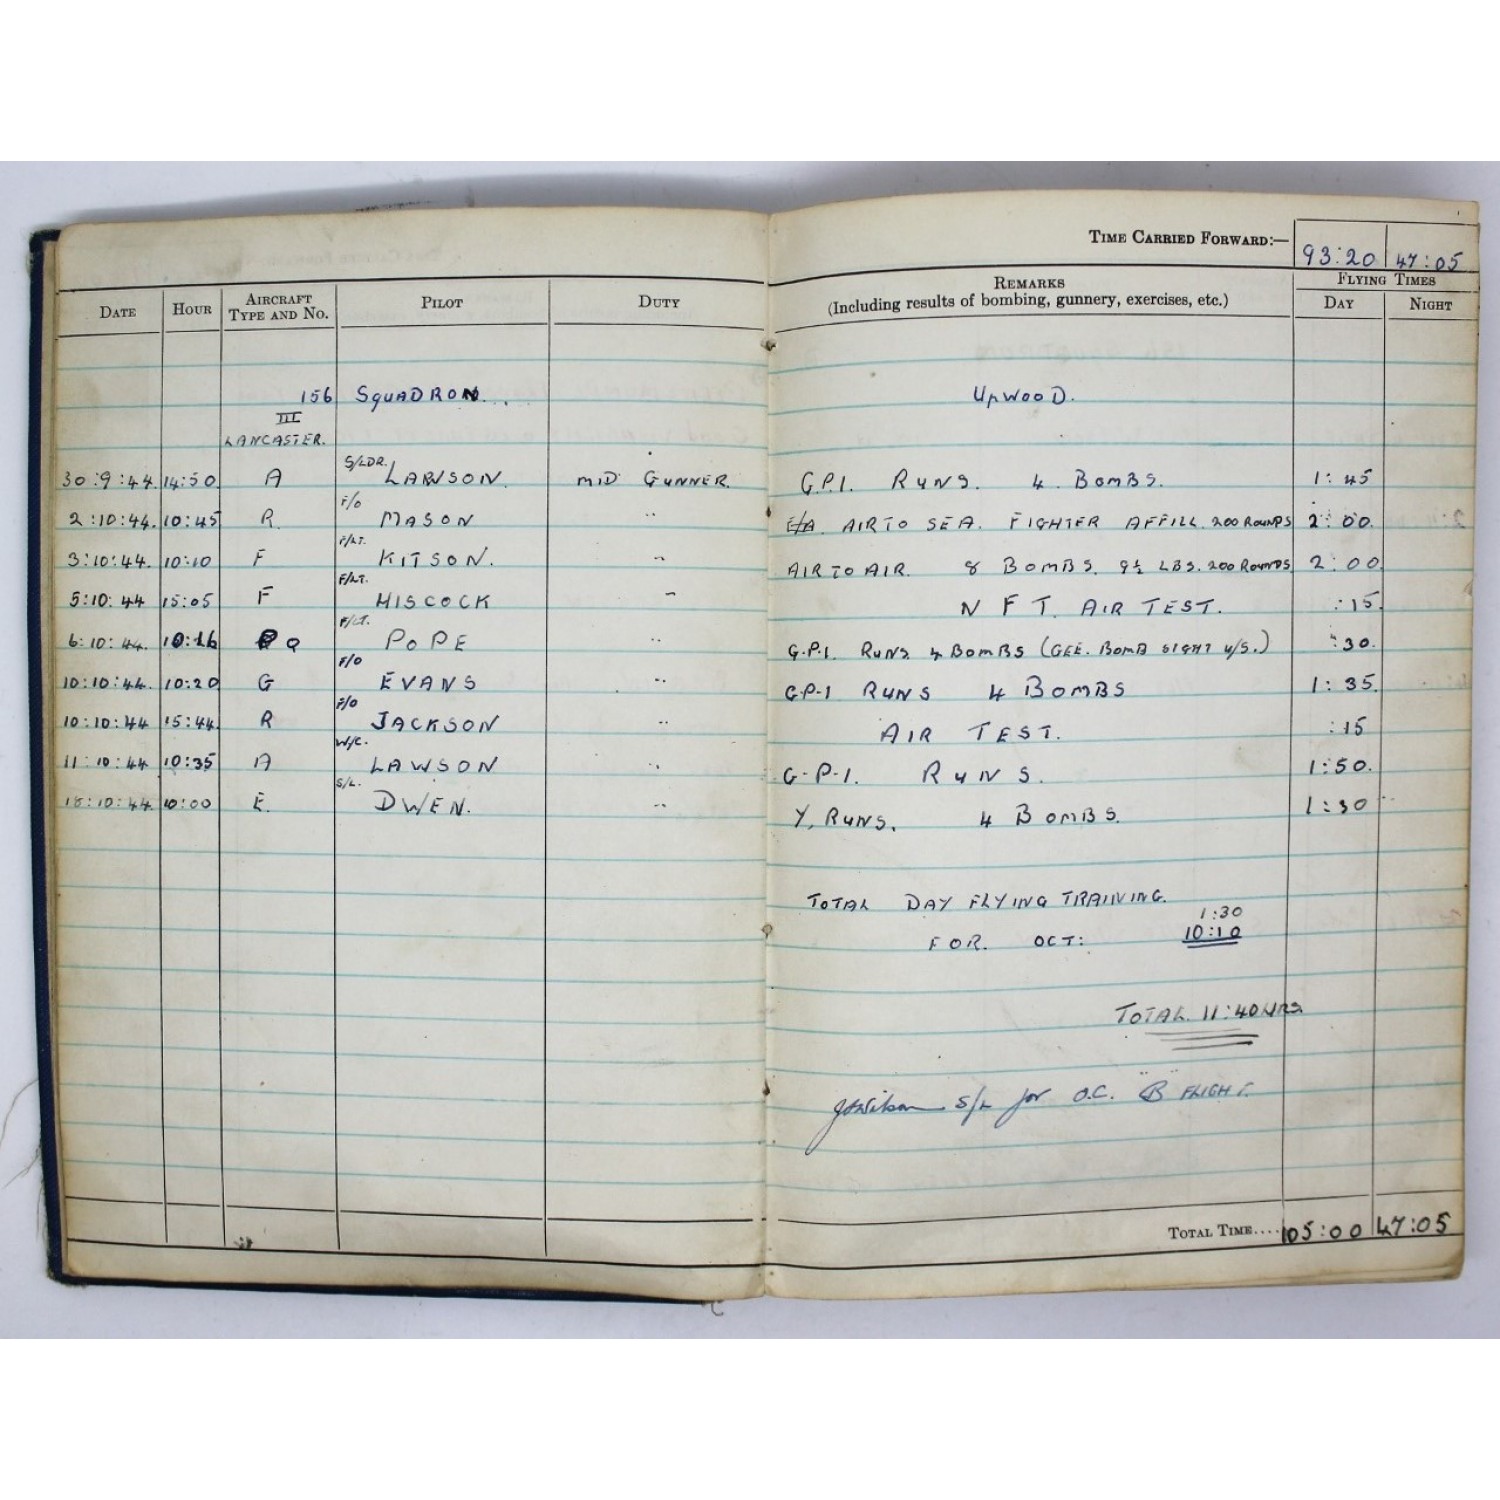 TIME CARRIED FORWARD:— 93:20 47:05
DATE HOUR AIRCRAFT TYPE AND NO. PILOT DUTY REMARKS (Including results of bombing, gunnery, exercises, etc.) FLYING TIMES DAY NIGHT
156 SQUADRON. UPWOOD.
III
LANCASTER.
30:9:44 14:50 A S/LDR. LAWSON. MID GUNNER. G.P.I. RUNS. 4 BOMBS. 1:45
2:10:44. 10:45 R. F/O MASON " AIR TO SEA. FIGHTER AFFILL. 200 ROUNDS 2:00.
3:10:44. 10:10 F F/LT. KITSON. " AIR TO AIR. 8 BOMBS. 9½ LBS. 200 ROUNDS 2:00
5:10:44 15:05 F F/LT. HISCOCK " N F T. AIR TEST. :15
6:10:44. 10:16 Q F/LT. POPE " G.P.I. RUNS 4 BOMBS (GEE. BOMB SIGHT U/S.) :30.
10:10:44. 10:20 G F/O EVANS " G.P.I RUNS 4 BOMBS 1:35.
10:10:44 15:44 R F/O JACKSON " AIR TEST. :15
11:10:44 10:35 A W/C. LAWSON " G-P-I. RUNS. 1:50.
18:10:44 10:00 E. S/L. DWEN. " Y, RUNS. 4 BOMBS. 1:30
TOTAL DAY FLYING TRAINING.
1:30
FOR. OCT: 10:10
TOTAL 11:40 HRS
S/L for O.C. "B" FLIGHT.
TOTAL TIME.... 105:00 47:05